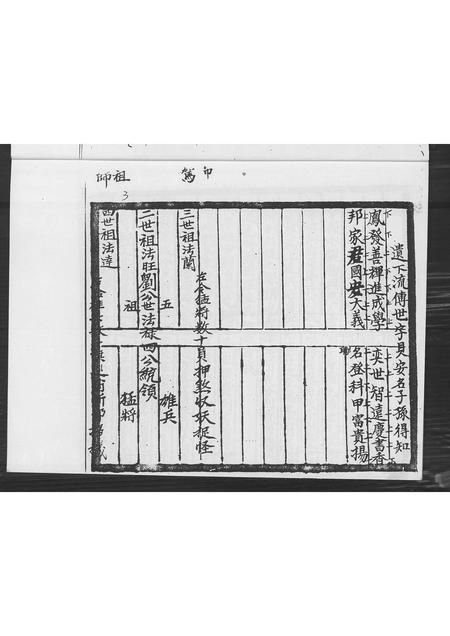 祖師
鴛印
3
遺下流傳世字員安名子孫得知
鳳發善禪進成學
奕世智遠慶書香
邦家君國安大義
名登科甲富貴揚
左令猛將數十員押煞收妖捉怪
三世祖法蘭
五
雄兵
二世祖法旺劉公世法祿四公統領
祖
猛將
四世祖法達